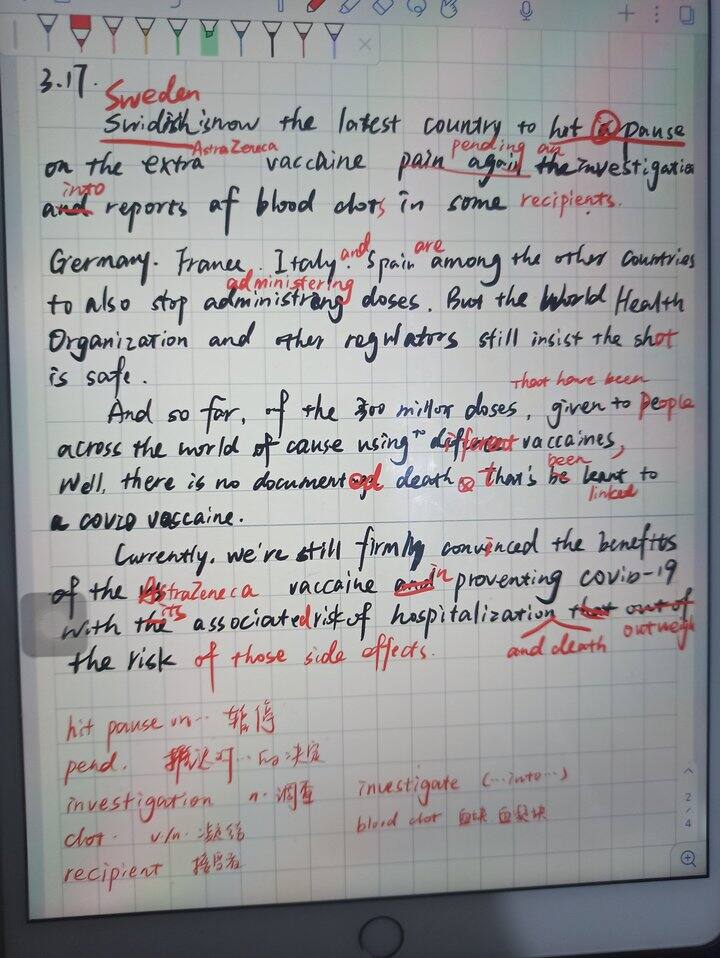 3.17.
Sweden
Swidish is now the latest country to hot a pause
AstraZeneca pending an
on the extra vaccaine pain again the investigation
into
and reports of blood clots in some recipients.
Germany. France. Italy. and Spain are among the other countries
administering
to also stop administrang doses. But the World Health
Organization and other regulators still insist the shot
is safe.
that have been
And so far, of the 300 millor doses, given to people
across the world of cause using to different vaccaines,
been
Well, there is no documented death that's be leant to
linked
a covid vaccaine.
Currently. we're still firmly convinced the benefits
of the AstraZeneca vaccaine and in proventing covid-19
its
with the associated risk of hospitalization that out of
and death outweigh
the risk of those side effects.
hit pause on... 暂停
pend. 推迟对...的决定
investigation n. 调查 investigate (...into...)
clot. v/n. 凝结 blood clot 血块 血凝块
recipient 接受者
2
/
4